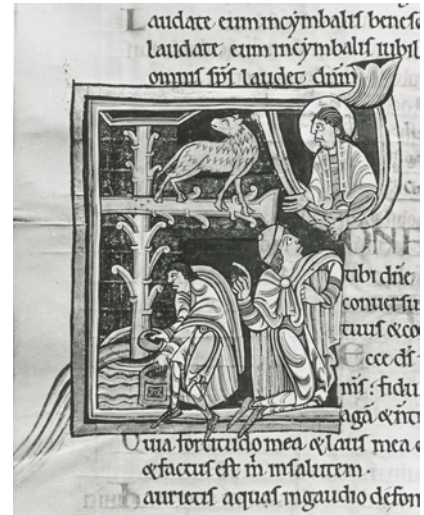 Laudate eum incymbalis benes
laudate eum incymbalis iubil
omnis sp̄s laudet dn̄m
ONF
tibi dn̄e
conuersu
tuus &co
Ecce ds̄
ms̄: fidu
agā &n̄ti
Quia fortitudo mea &laus mea
&factus est m̄ insalutem.
haurietis aquas ingaudio defon